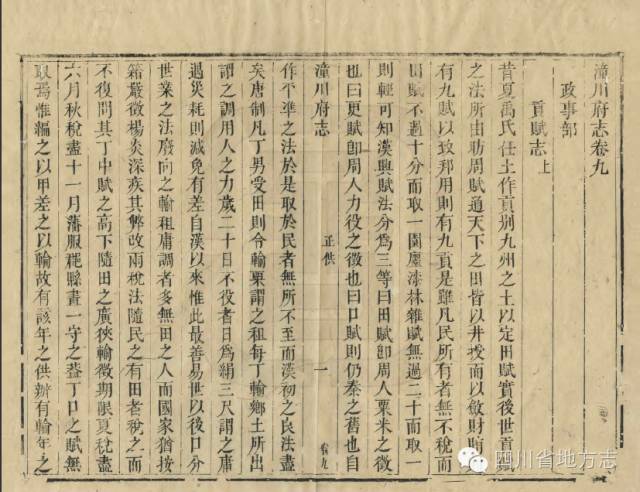 潼川府志卷九
政事部
貢賦志上
昔夏禹氏任土作貢别九州之土以定田賦實後世貢賦
之法所由昉周賦通天下之田皆以井授而以斂財賄
有九賦以致邦用則有九貢是雖凡民所有者無不稅而
田賦不過十分而取一園廛漆林雜賦無過二十而取一
則輕可知漢興賦法分爲三等曰田賦卽周人粟米之徵
也曰更賦卽周人力役之徵也曰口賦則仍秦之舊也自
潼川府志
正供
一
卷九
作平準之法於是取於民者無所不至而漢初之良法盡
矣唐制凡丁男受田則令輸粟謂之租每丁輸鄉土所出
謂之調用人之力歲二十日不役者日爲絹三尺謂之庸
遇災耗則減免有差自漢以來惟此最善易世以後口分
世業之法廢向之輸租庸調者多無田之人而國家猶按
籍嚴徵楊炎深疾其弊改兩稅法隨民之有田者稅之而
不復問其丁中賦之高下隨田之廣狹輸徵期限夏稅盡
六月秋稅盡十一月藩服郡縣晝一守之登丁口之賦無
取焉惟編之以甲差之以輸故有該年之供辦有輸年之
四川省地方志